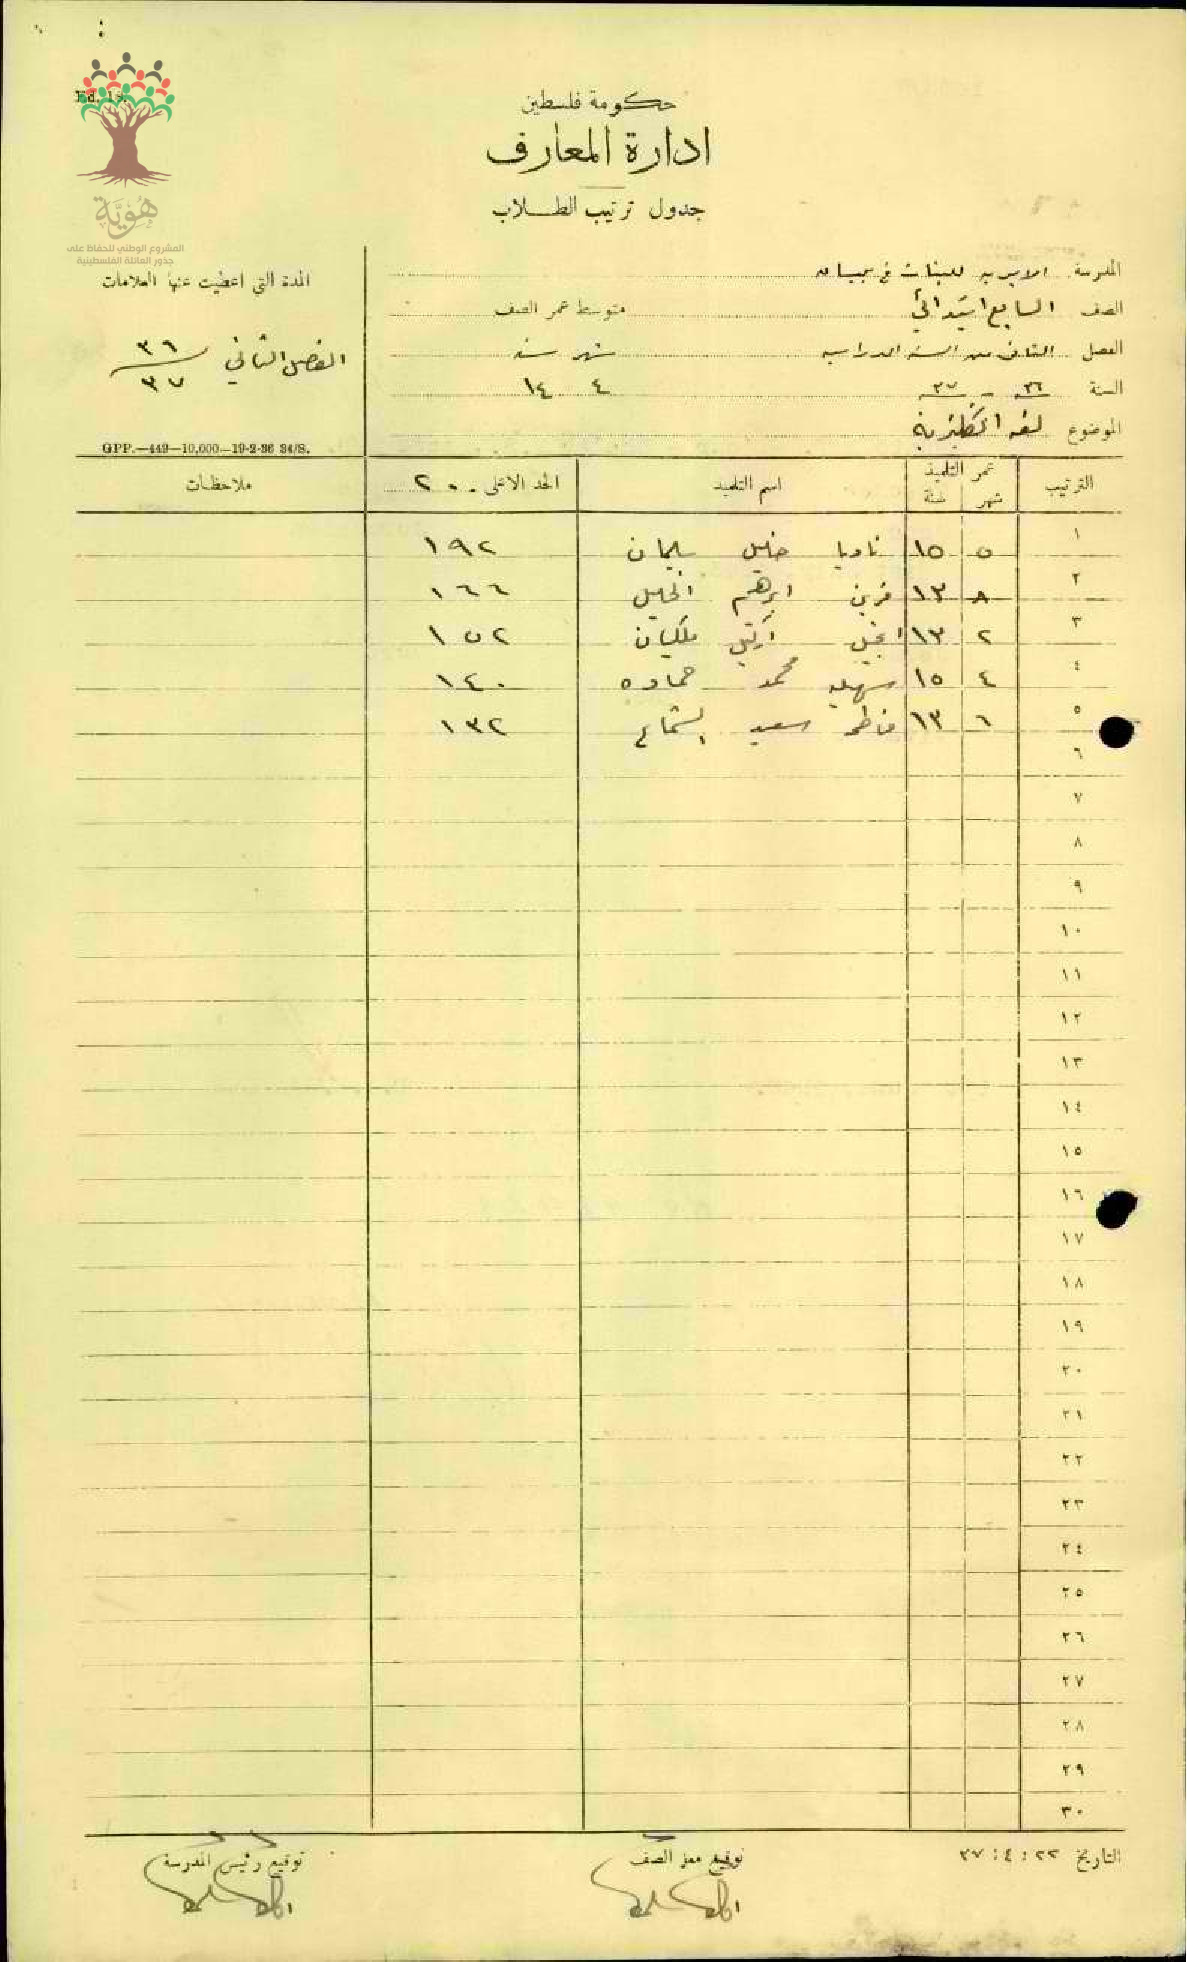 Ed. 19.
هُوِيَّة
المشروع الوطني للحفاظ على
جذور العائلة الفلسطينية
حكومة فلسطين
ادارة المعارف
جدول ترتيب الطلاب
المدرسة الاميريه للبنات في بيسان
الصف السابع ابتدائي متوسط عمر الصف
الفصل الثاني من السنه الدراسيه شهر سنه
السنة ٣٦ - ٣٧ ٤ ١٤
الموضوع لغه انكليزية
المدة التي اعطيت عنها العلامات
الفصل الثاني ٣٦
٣٧
GPP.—449—10,000—19-2-36 34/S.
الترتيب عمر التلميذ اسم التلميذ الحد الاعلى ٢٠٠ ملاحظات
شهر سنة
١ ٥ ١٥ ناديا خليل سليمان ١٩٢
٢ ٨ ١٣ ابرهيم الخليل ١٦٦
٣ ٢ ١٣ انجيل ملكيان ١٥٢
٤ ٤ ١٥ سهيله محمد حماده ١٤٠
٥ ٦ ١٣ فاطمه سعيد الشماع ١٣٢
٦
٧
٨
٩
١٠
١١
١٢
١٣
١٤
١٥
١٦
١٧
١٨
١٩
٢٠
٢١
٢٢
٢٣
٢٤
٢٥
٢٦
٢٧
٢٨
٢٩
٣٠
التاريخ ٢٢ : ٤ : ٣٧ توقيع معلم الصف توقيع رئيس المدرسة